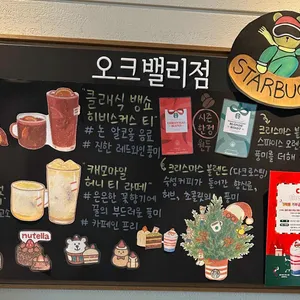 오크밸리점
STARBU
"클래식 뱅쇼
히비스커스 티"
# 논 알코올 음료
# 진한 레드와인 풍미
시즌
한정
원두
크리스마스 블
스파이스 오렌
풍미를 더해
"캐모마일
허니 티 라떼"
# 은은한 꽃향기에
꿀의 부드러움 풍미
# 카페인 프리
*크리스마스 블렌드(다크로스트)
숙성커피가 들어간
허브, 초콜릿의 풍미
nutella